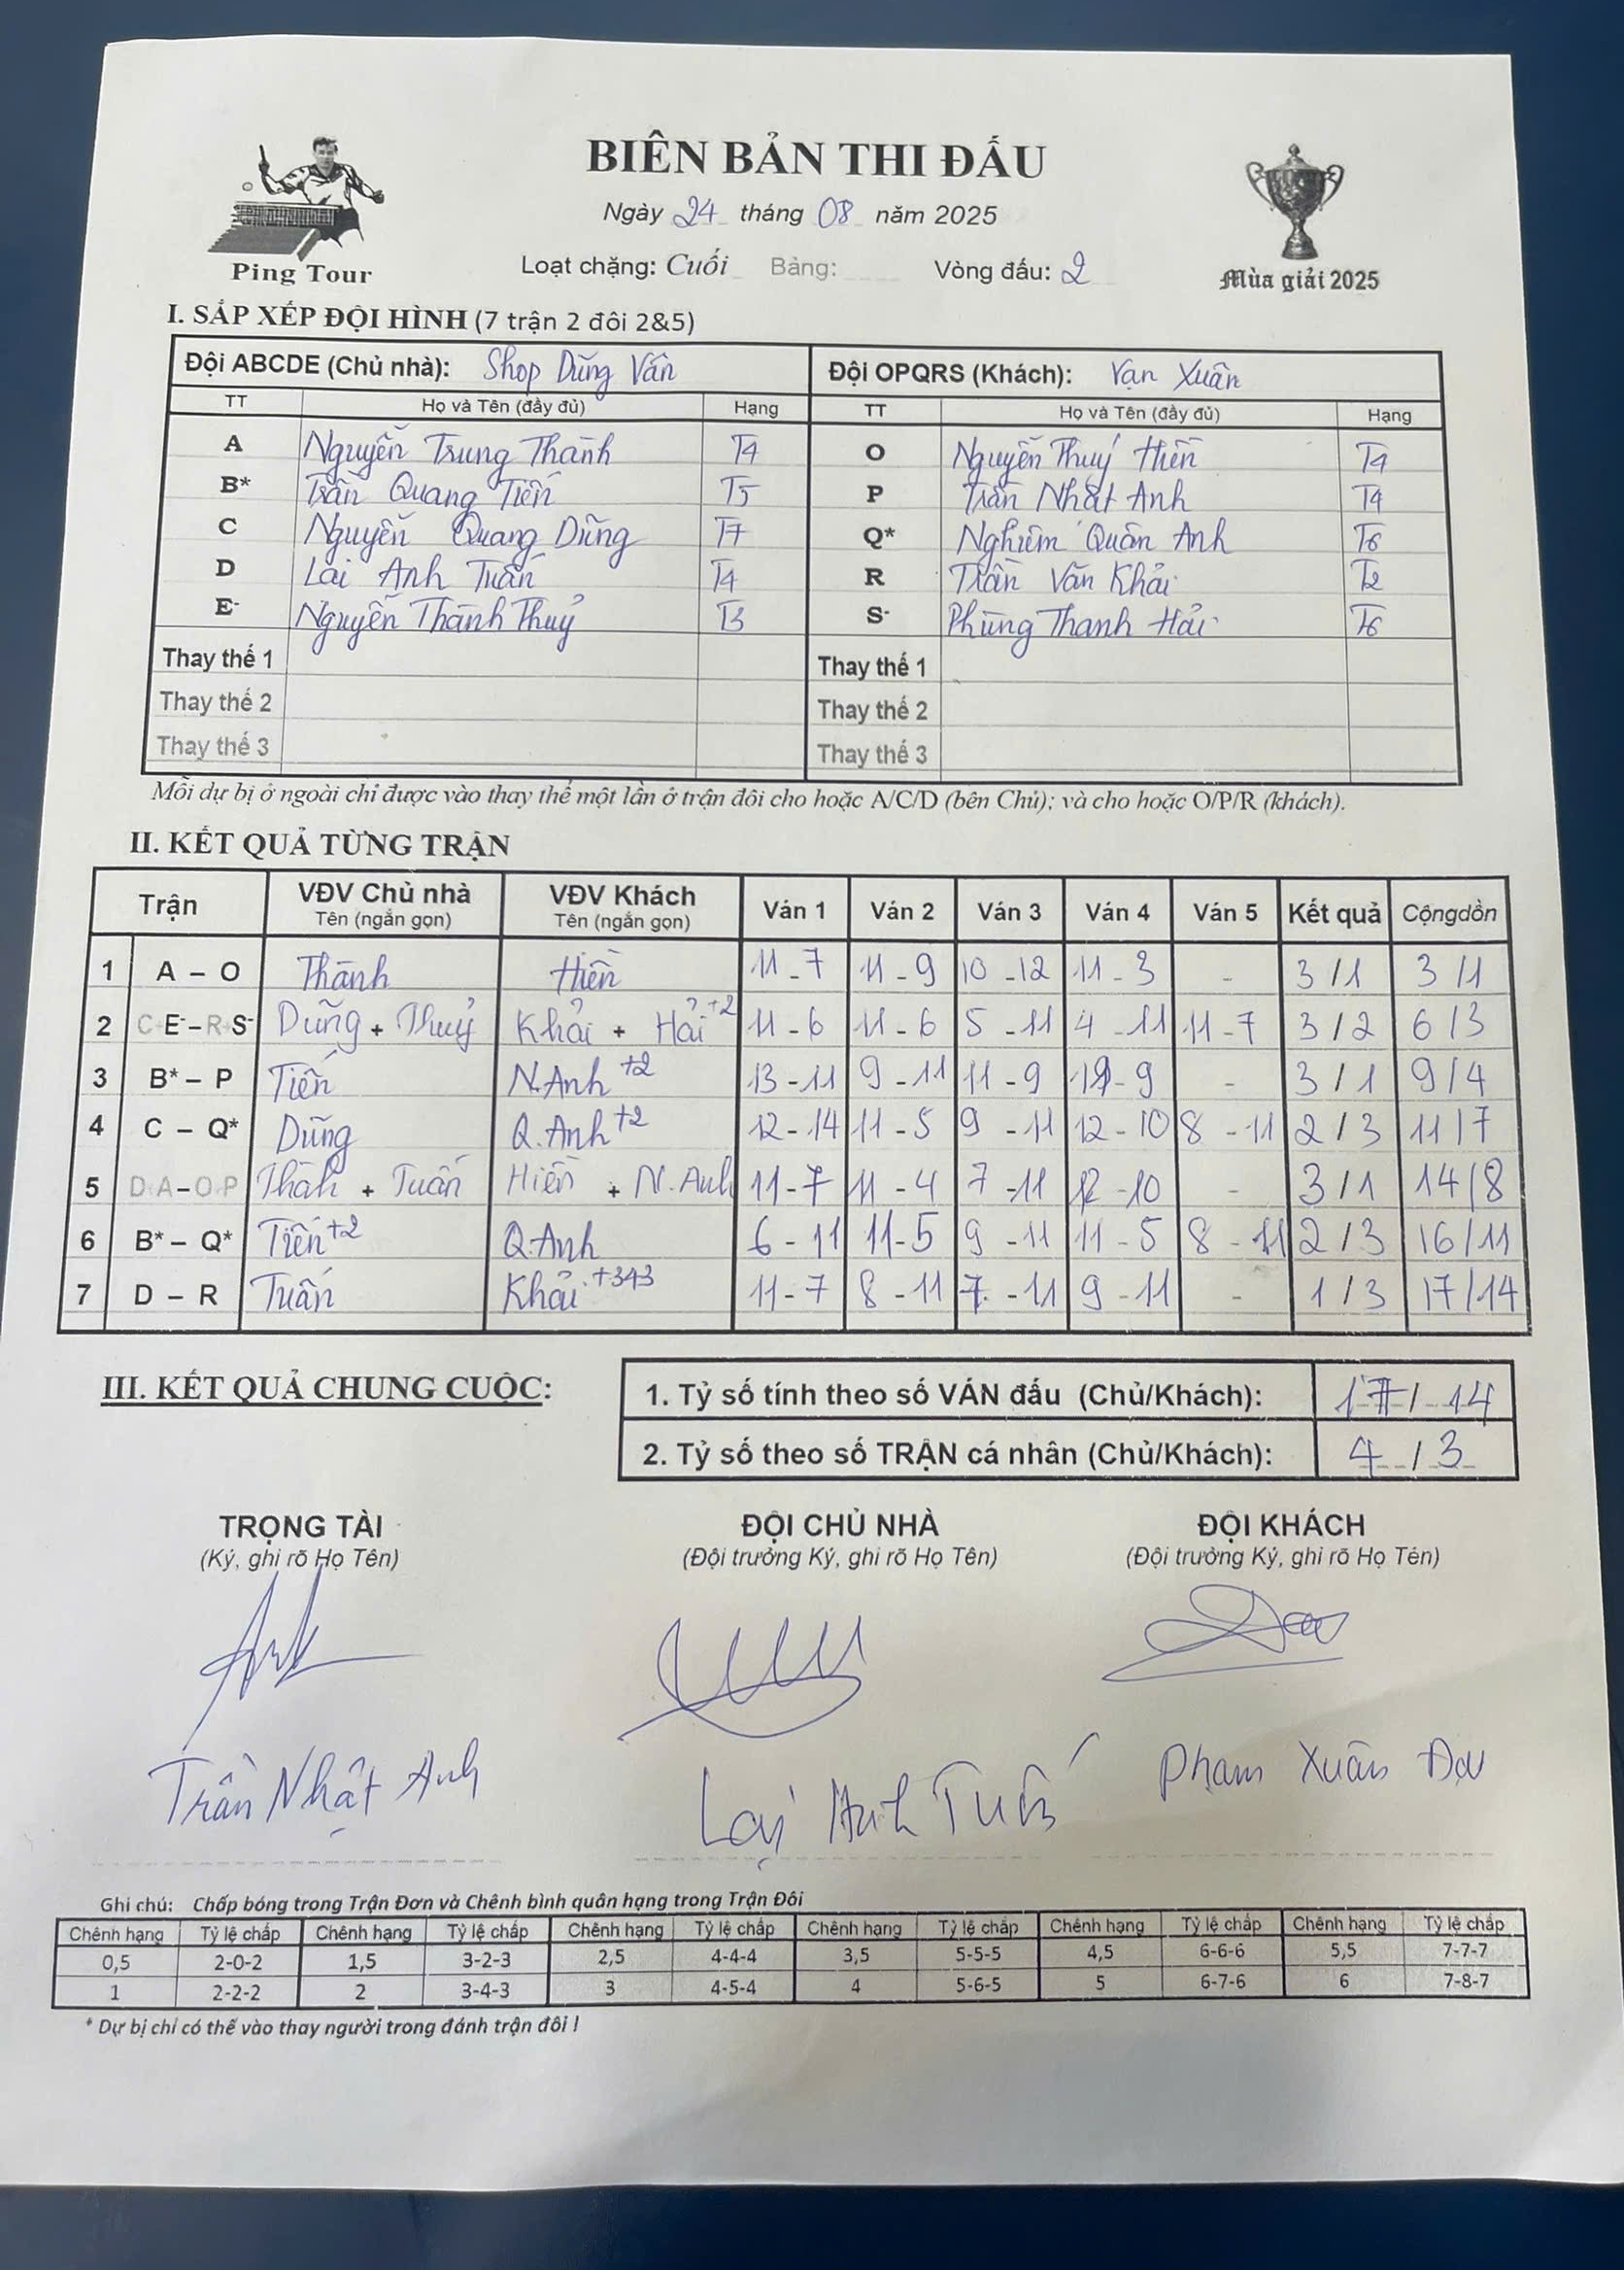 BIÊN BẢN THI ĐẤU
Ngày 24 tháng 08 năm 2025
Loạt chặng: Cuối Bảng: Vòng đấu: 2
Ping Tour
Mùa giải 2025
I. SẮP XẾP ĐỘI HÌNH (7 trận 2 đôi 2&5)
Đội ABCDE (Chủ nhà): Shop Dũng Vân Đội OPQRS (Khách): Vạn Xuân
TT Họ và Tên (đầy đủ) Hạng TT Họ và Tên (đầy đủ) Hạng
A Nguyễn Trung Thành T4 O Nguyễn Thuý Hiền T4
B* Trần Quang Tiến T5 P Trần Nhật Anh T4
C Nguyễn Quang Dũng T7 Q* Nghiêm Quân Anh T6
D Lại Anh Tuấn T4 R Trần Văn Khải T2
E- Nguyễn Thành Thuỷ T3 S- Phùng Thanh Hải T6
Thay thế 1 Thay thế 1
Thay thế 2 Thay thế 2
Thay thế 3 Thay thế 3
Mỗi dự bị ở ngoài chỉ được vào thay thế một lần ở trận đôi cho hoặc A/C/D (bên Chủ); và cho hoặc O/P/R (khách).
II. KẾT QUẢ TỪNG TRẬN
Trận VĐV Chủ nhà VĐV Khách Ván 1 Ván 2 Ván 3 Ván 4 Ván 5 Kết quả Cộngdồn
Tên (ngắn gọn) Tên (ngắn gọn)
1 A – O Thành Hiền 11-7 11-9 10-12 11-3 - 3/1 3/1
2 C+E-–R+S- Dũng + Thuỷ Khải + Hải+2 11-6 11-6 5-11 4-11 11-7 3/2 6/3
3 B* – P Tiến N.Anh+2 13-11 9-11 11-9 -9 - 3/1 9/4
4 C – Q* Dũng Q.Anh+2 12-14 11-5 9-11 12-10 8-11 2/3 11/7
5 D+A–O+P Thàh + Tuấn Hiền + N.Anh 11-7 11-4 7-11 12-10 - 3/1 14/8
6 B* – Q* Tiến+2 Q.Anh 6-11 11-5 9-11 11-5 8-11 2/3 16/11
7 D – R Tuấn Khải+343 11-7 8-11 7-11 9-11 - 1/3 17/14
III. KẾT QUẢ CHUNG CUỘC:
1. Tỷ số tính theo số VÁN đấu (Chủ/Khách): 17/14
2. Tỷ số theo số TRẬN cá nhân (Chủ/Khách): 4/3
TRỌNG TÀI ĐỘI CHỦ NHÀ ĐỘI KHÁCH
(Ký, ghi rõ Họ Tên) (Đội trưởng Ký, ghi rõ Họ Tên) (Đội trưởng Ký, ghi rõ Họ Tên)
Trần Nhật Anh Lại Anh Tuấn Phạm Xuân
Ghi chú: Chấp bóng trong Trận Đơn và Chênh bình quân hạng trong Trận Đôi
Chênh hạng Tỷ lệ chấp Chênh hạng Tỷ lệ chấp Chênh hạng Tỷ lệ chấp Chênh hạng Tỷ lệ chấp Chênh hạng Tỷ lệ chấp Chênh hạng Tỷ lệ chấp
0,5 2-0-2 1,5 3-2-3 2,5 4-4-4 3,5 5-5-5 4,5 6-6-6 5,5 7-7-7
1 2-2-2 2 3-4-3 3 4-5-4 4 5-6-5 5 6-7-6 6 7-8-7
* Dự bị chỉ có thể vào thay người trong đánh trận đôi !